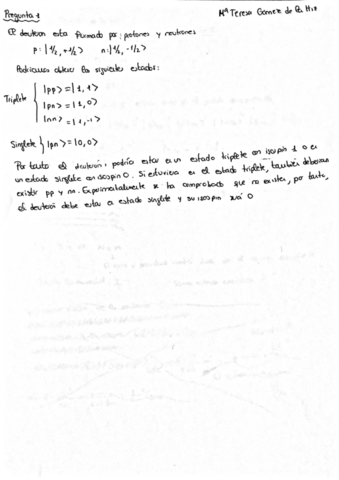 Pregunta 1
Mª Teresa Gómez de
El deuterón esta formado por: protones y neutrones
p: |1/2, +1/2> n: |1/2, -1/2>
Podríamos obtener los siguientes estados:
Triplete { |pp> = |1, 1>
|pn> = |1, 0>
|nn> = |1, -1>
Singlete } |pn> = |0, 0>
Por tanto el deuterón, podría estar en un estado triplete con isospin 1 o en
un estado singlete con isospin 0. Si estuviera en el estado triplete, también deberían
existir pp y nn. Experimentalmente se ha comprobado que no existen, por tanto,
el deuterón debe estar en estado singlete y su isospin será 0